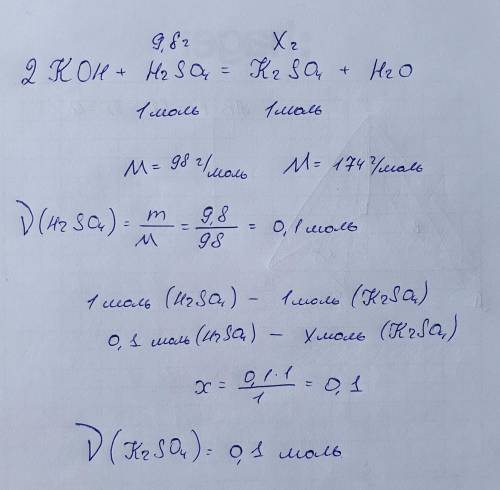 9,8г Xг
2 KOH + H2SO4 = K2SO4 + H2O
1 моль 1 моль
M = 98 г/моль M = 174 г/моль
ν(H2SO4) = m/M = 9,8/98 = 0,1 моль
1 моль (H2SO4) – 1 моль (K2SO4)
0,1 моль (H2SO4) – X моль (K2SO4)
x = 0,1·1/1 = 0,1
ν(K2SO4) = 0,1 моль